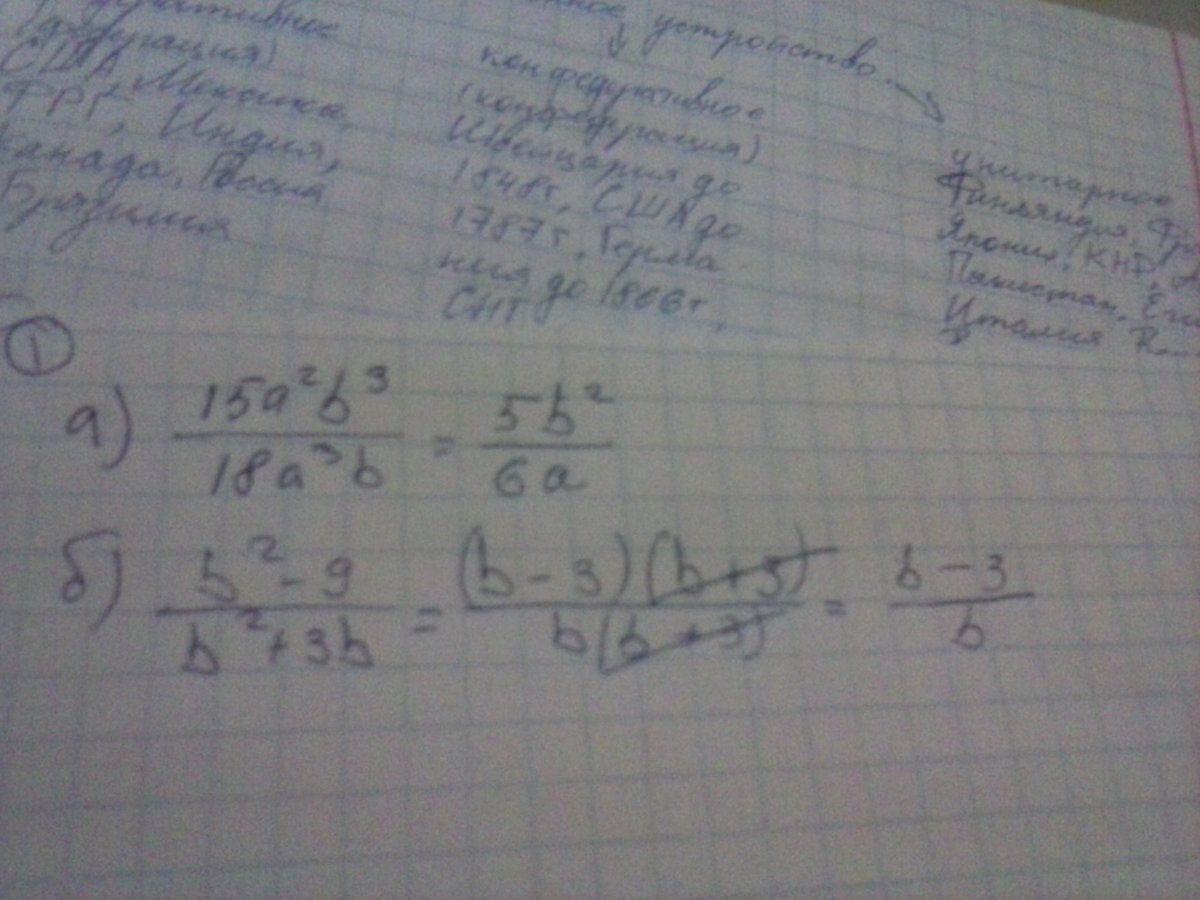 устройство
(федерация)
США, Мексика,
ФРГ, Индия,
Канада, Россия
Бразилия
конфедеративное
(конфедерация)
Швейцария до
1848г, США до
1787г, Герма-
ния до 1866г,
унитарное
Финляндия,
Япония, КНР,
Пакистан,
Италия
①
а) 15a²b³ / 18a³b = 5b² / 6a
б) b²-9 / b²+3b = (b-3)(b+3) / b(b+3) = b-3 / b